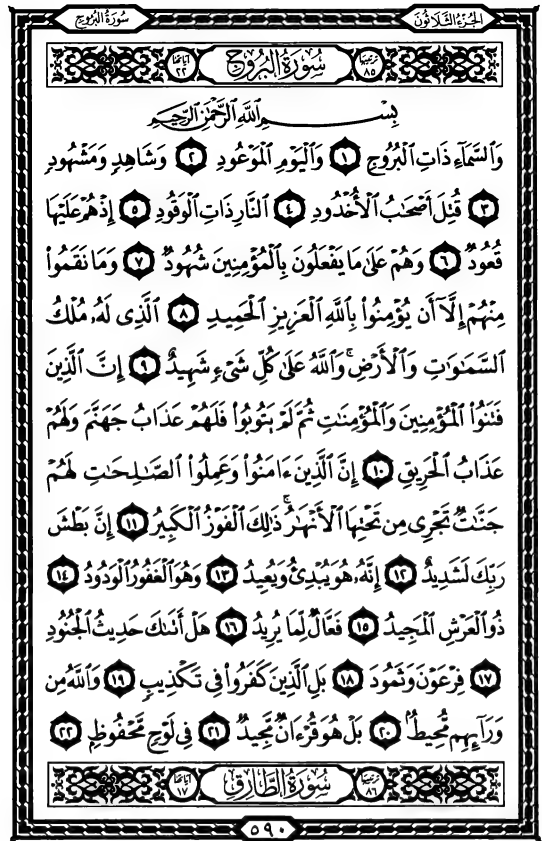 الجزء الثلاثون
سورة البروج
ترتيبها ٨٥ سورة البروج آياتها ٢٢
بِسْمِ اللَّهِ الرَّحْمَٰنِ الرَّحِيمِ
وَالسَّمَاءِ ذَاتِ الْبُرُوجِ ١ وَالْيَوْمِ الْمَوْعُودِ ٢ وَشَاهِدٍ وَمَشْهُودٍ
٣ قُتِلَ أَصْحَابُ الْأُخْدُودِ ٤ النَّارِ ذَاتِ الْوَقُودِ ٥ إِذْ هُمْ عَلَيْهَا
قُعُودٌ ٦ وَهُمْ عَلَىٰ مَا يَفْعَلُونَ بِالْمُؤْمِنِينَ شُهُودٌ ٧ وَمَا نَقَمُوا
مِنْهُمْ إِلَّا أَن يُؤْمِنُوا بِاللَّهِ الْعَزِيزِ الْحَمِيدِ ٨ الَّذِي لَهُ مُلْكُ
السَّمَاوَاتِ وَالْأَرْضِ ۚ وَاللَّهُ عَلَىٰ كُلِّ شَيْءٍ شَهِيدٌ ٩ إِنَّ الَّذِينَ
فَتَنُوا الْمُؤْمِنِينَ وَالْمُؤْمِنَاتِ ثُمَّ لَمْ يَتُوبُوا فَلَهُمْ عَذَابُ جَهَنَّمَ وَلَهُمْ
عَذَابُ الْحَرِيقِ ١٠ إِنَّ الَّذِينَ ءَامَنُوا وَعَمِلُوا الصَّالِحَاتِ لَهُمْ
جَنَّاتٌ تَجْرِي مِن تَحْتِهَا الْأَنْهَارُ ۚ ذَٰلِكَ الْفَوْزُ الْكَبِيرُ ١١ إِنَّ بَطْشَ
رَبِّكَ لَشَدِيدٌ ١٢ إِنَّهُ هُوَ يُبْدِئُ وَيُعِيدُ ١٣ وَهُوَ الْغَفُورُ الْوَدُودُ ١٤
ذُو الْعَرْشِ الْمَجِيدُ ١٥ فَعَّالٌ لِّمَا يُرِيدُ ١٦ هَلْ أَتَاكَ حَدِيثُ الْجُنُودِ
١٧ فِرْعَوْنَ وَثَمُودَ ١٨ بَلِ الَّذِينَ كَفَرُوا فِي تَكْذِيبٍ ١٩ وَاللَّهُ مِن
وَرَائِهِم مُّحِيطٌ ٢٠ بَلْ هُوَ قُرْءَانٌ مَّجِيدٌ ٢١ فِي لَوْحٍ مَّحْفُوظٍ ٢٢
ترتيبها ٨٦ سورة الطارق آياتها ١٧
٥٩٠